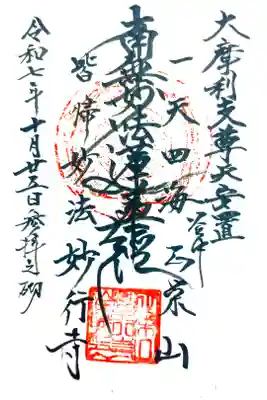 大摩利支尊天安置
一天四海 正栄山
南無妙法蓮華経
皆帰妙法 妙行寺
令和七年十月廿五日参拝之砌